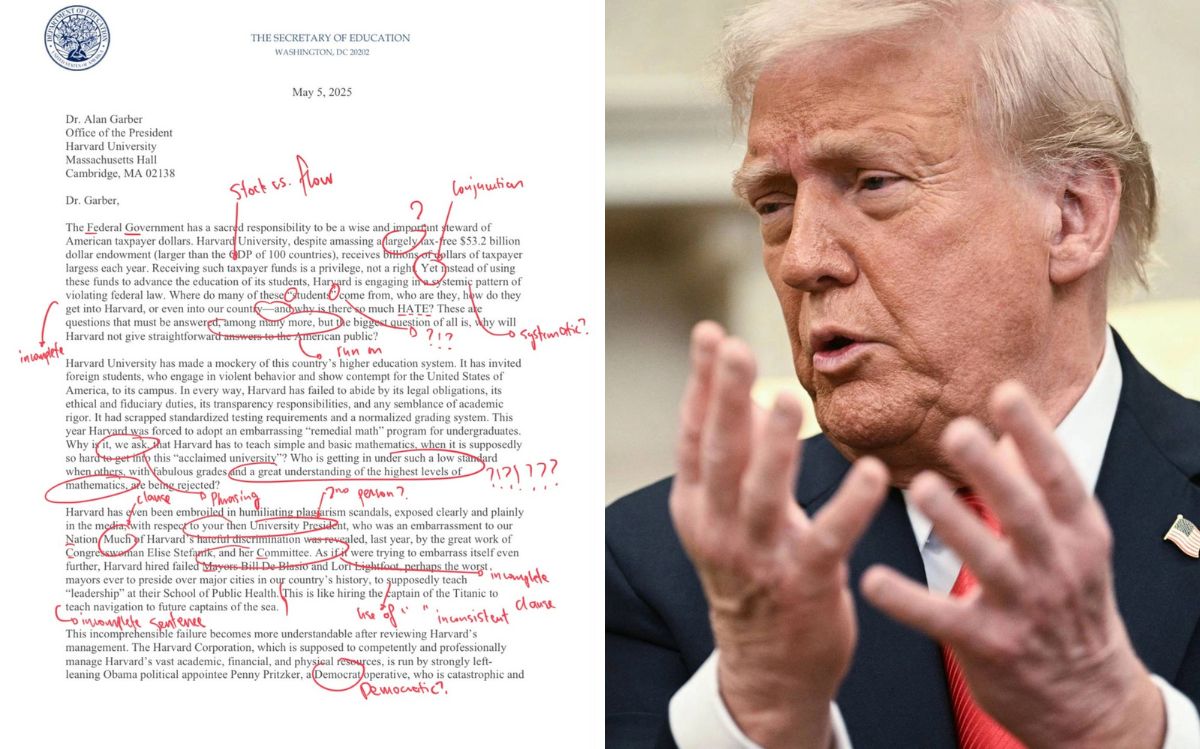 THE SECRETARY OF EDUCATION
WASHINGTON, DC 20202
May 5, 2025
Dr. Alan Garber
Office of the President
Harvard University
Massachusetts Hall
Cambridge, MA 02138
Stock vs. flow
Conjunction
Dr. Garber,
?
The Federal Government has a sacred responsibility to be a wise and important steward of
American taxpayer dollars. Harvard University, despite amassing a largely tax-free $53.2 billion
dollar endowment (larger than the GDP of 100 countries), receives billions of dollars of taxpayer
largess each year. Receiving such taxpayer funds is a privilege, not a right. Yet instead of using
these funds to advance the education of its students, Harvard is engaging in a systemic pattern of
violating federal law. Where do many of these “students” come from, who are they, how do they
get into Harvard, or even into our country—and why is there so much HATE? These are
questions that must be answered, among many more, but the biggest question of all is, why will
Harvard not give straightforward answers to the American public?
incomplete
run on
?!?
systematic?
Harvard University has made a mockery of this country’s higher education system. It has invited
foreign students, who engage in violent behavior and show contempt for the United States of
America, to its campus. In every way, Harvard has failed to abide by its legal obligations, its
ethical and fiduciary duties, its transparency responsibilities, and any semblance of academic
rigor. It had scrapped standardized testing requirements and a normalized grading system. This
year Harvard was forced to adopt an embarrassing “remedial math” program for undergraduates.
Why is it, we ask, that Harvard has to teach simple and basic mathematics, when it is supposedly
so hard to get into this “acclaimed university”? Who is getting in under such a low standard
when others, with fabulous grades and a great understanding of the highest levels of
mathematics, are being rejected?
?!?!???
clause
Phrasing
2nd person?
Harvard has even been embroiled in humiliating plagiarism scandals, exposed clearly and plainly
in the media, with respect to your then University President, who was an embarrassment to our
Nation. Much of Harvard’s hateful discrimination was revealed, last year, by the great work of
Congresswoman Elise Stefanik, and her Committee. As if it were trying to embarrass itself even
further, Harvard hired failed Mayors Bill De Blasio and Lori Lightfoot, perhaps the worst
mayors ever to preside over major cities in our country’s history, to supposedly teach
“leadership” at their School of Public Health. This is like hiring the captain of the Titanic to
teach navigation to future captains of the sea.
incomplete clause
incomplete sentence
use of “ ” inconsistent
This incomprehensible failure becomes more understandable after reviewing Harvard’s
management. The Harvard Corporation, which is supposed to competently and professionally
manage Harvard’s vast academic, financial, and physical resources, is run by strongly left-
leaning Obama political appointee Penny Pritzker, a Democrat operative, who is catastrophic and
Democratic?